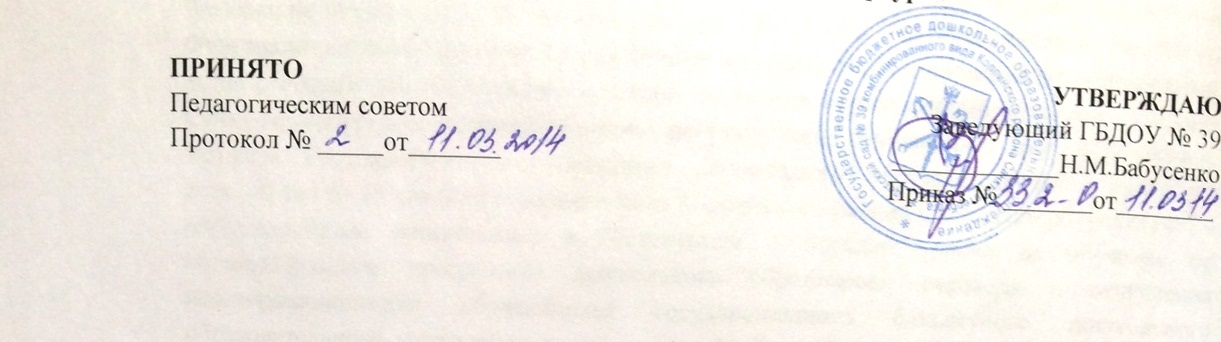 ПРИНЯТО
Педагогическим советом
Протокол № 2 от 11.03.2014
УТВЕРЖДАЮ
Заведующий ГБДОУ № 39
Н.М.Бабусенко
Приказ № 33.2-О от 11.0314
Государственное бюджетное дошкольное
детский сад № 39 комбинированного вида Колпинского района